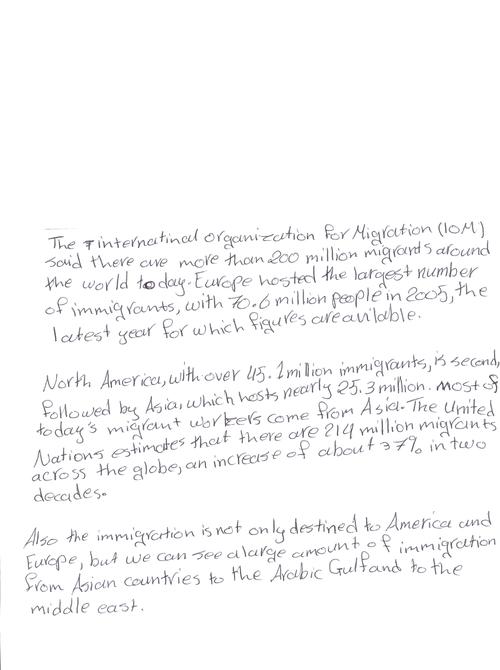 The international organization for Migration (IOM)
said there are more than 200 million migrants around
the world today. Europe hosted the largest number
of immigrants, with 70.6 million people in 2005, the
latest year for which figures are available.
North America, with over 45.1 million immigrants, is second,
followed by Asia, which hosts nearly 25.3 million. Most of
today's migrant workers come from Asia. The United
Nations estimates that there are 214 million migrants
across the globe, an increase of about 37% in two
decades.
Also the immigration is not only destined to America and
Europe, but we can see a large amount of immigration
from Asian countries to the Arabic Gulf and to the
middle east.